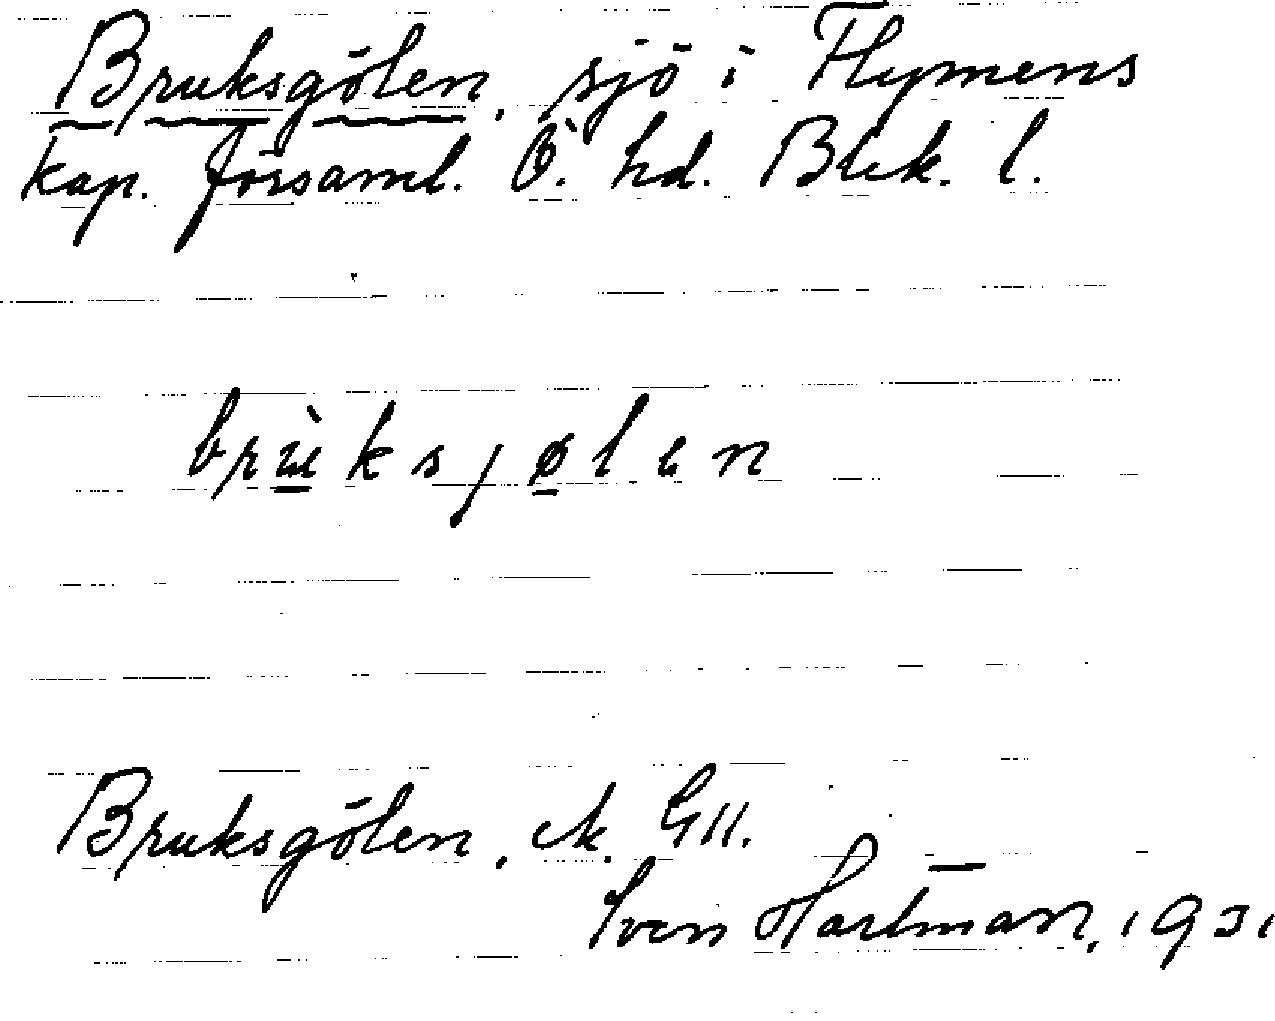 Bruksgölen, sjö i Flymens
kap. församl. Ö. hd. Blek. l.
brùksjølen
Bruksgölen, ek. GII.
Sven Hartman, 1931